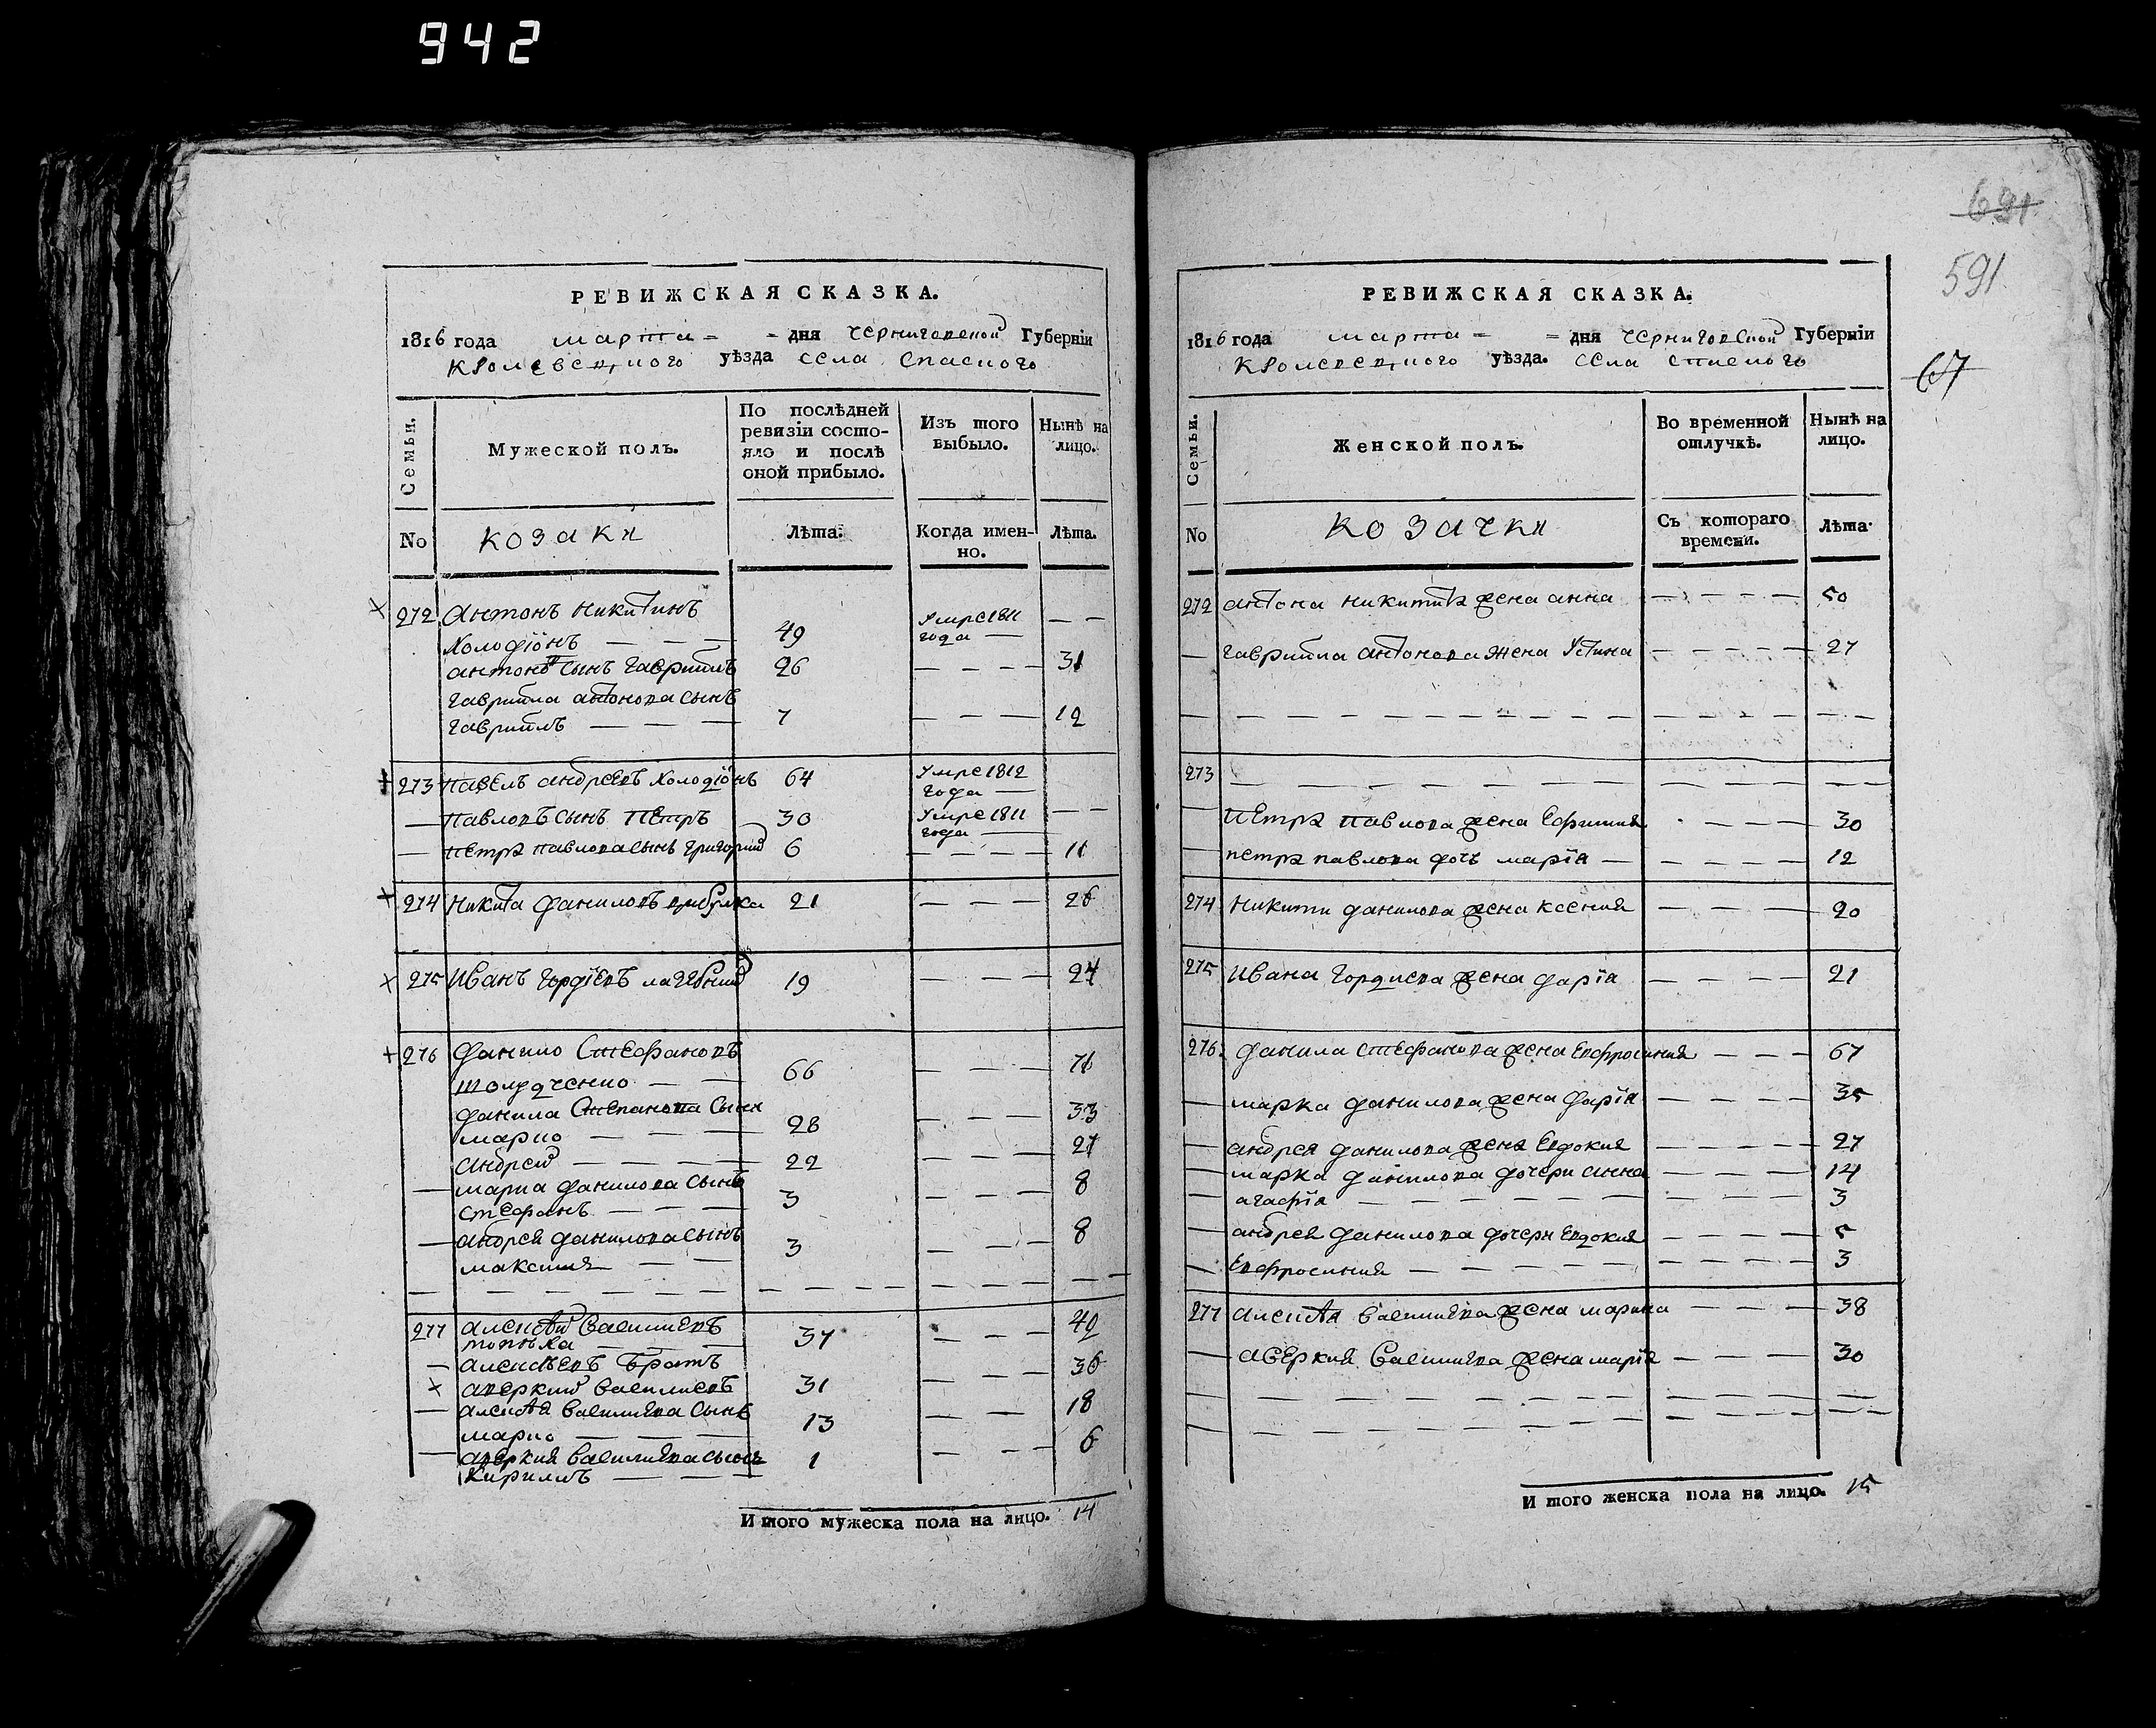 942
РЕВИЖСКАЯ СКАЗКА.
1816 года марта = = дня Черниговской Губерніи
Кролевецкого уѣзда села Спаского
Семьи.
Мужеской полъ.
По послѣдней ревизіи состояло и послѣ оной прибыло.
Изъ того выбыло.
Нынѣ на лицо.
No
козаки
Лѣта.
Когда именно.
Лѣта.
272 Антонъ Никитинъ
Холодіонъ — — — 49 Умре 1811 года — — —
антоновъ сынъ гавріилъ 26 — — — — 31
гавріила антонова сынъ
гавріилъ — — — 7 — — — 12
273 Павелъ андреевъ Холодіонъ 64 Умре 1812 года —
— павловъ сынъ Петръ — 30 Умре 1811 года — — —
— петра павлова сынъ григорий 6 — — — — 11
274 Никита даниловъ 21 — — — 26
275 Иванъ гордіевъ 19 — — — 24
276 данило Стефановъ
— — 66 — — — 71
данила Степанова сына
марко — — — 28 — — — 33
андрей — — — — 22 — — — 27
— марка данилова сынъ
стефанъ — — — 3 — — — 8
— андрея данилова сынъ
максимъ — — 3 — — — 8
277 алексѣй васильевъ
— — — 37 — — — 42
— алексѣевъ братъ
аверкий василиевъ 31 — — — 36
— алексѣя василиева сынъ
марко — — — 13 — — — 18
— аверкия василиева сынъ
Кирилъ — — — 1 — — — 6
И того мужеска пола на лицо. 14
691
591
67
РЕВИЖСКАЯ СКАЗКА.
1816 года марта = = дня Черниговской Губерніи
Кролевецкого уѣзда. села Спаского
Семьи.
Женской полъ.
Во временной отлучкѣ.
Нынѣ на лицо.
No
козачки
Съ котораго времени.
Лѣта.
272 антона никитина жена анна — — — — 50
— гавріила антонова жена Устина — — — — 27
273 — — — — — — — —
— Петра павлова жена Ефимия — — — 30
— петра павлова дочь марія — — — — — 12
274 Никити данилова жена ксения — — — 20
275 Ивана гордиева жена дарія — — — — 21
276. данила стефанова жена Евфросиния — — — 67
— марка данилова жена дарія — — — — 35
— андрея данилова жена Евдокия — — — — 27
— марка данилова дочери анна 14
— агафія — — — — — — — — 3
— андрея данилова дочери Евдокия — — — — 5
— Евфросиния — — — — — — — — 3
277 алексѣя василиева жена марина — — — 38
— аверкия василиева жена марія — — — 30
И того женска пола на лицо. 15